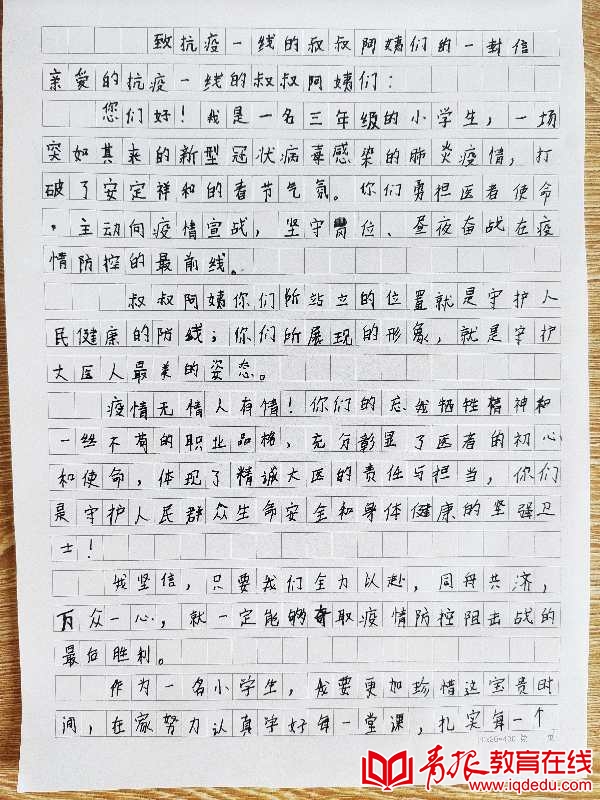 致抗疫一线的叔叔阿姨们的一封信
亲爱的抗疫一线的叔叔阿姨们：
您们好！我是一名三年级的小学生，一场
突如其来的新型冠状病毒感染的肺炎疫情，打
破了安定祥和的春节气氛。你们勇担医者使命
，主动向疫情宣战，坚守岗位、昼夜奋战在疫
情防控的最前线。
叔叔阿姨你们所站立的位置就是守护人
民健康的防线；你们所展现的形象，就是守护
大医人最美的姿态。
疫情无情人有情！你们的忘我牺牲精神和
一丝不苟的职业品格，充分彰显了医者的初心
和使命，体现了精诚大医的责任与担当，你们
是守护人民群众生命安全和身体健康的坚强卫
士！
我坚信，只要我们全力以赴，同舟共济，
万众一心，就一定能够夺取疫情防控阻击战的
最后胜利。
作为一名小学生，我要更加珍惜这宝贵时
间，在家努力认真学好每一堂课，扎实每一个
青报教育在线
www.iqdedu.com